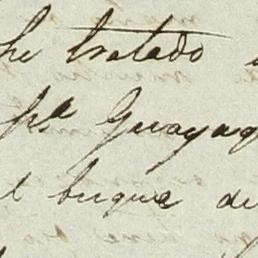 he tratado
pª Guayaq
l buque de